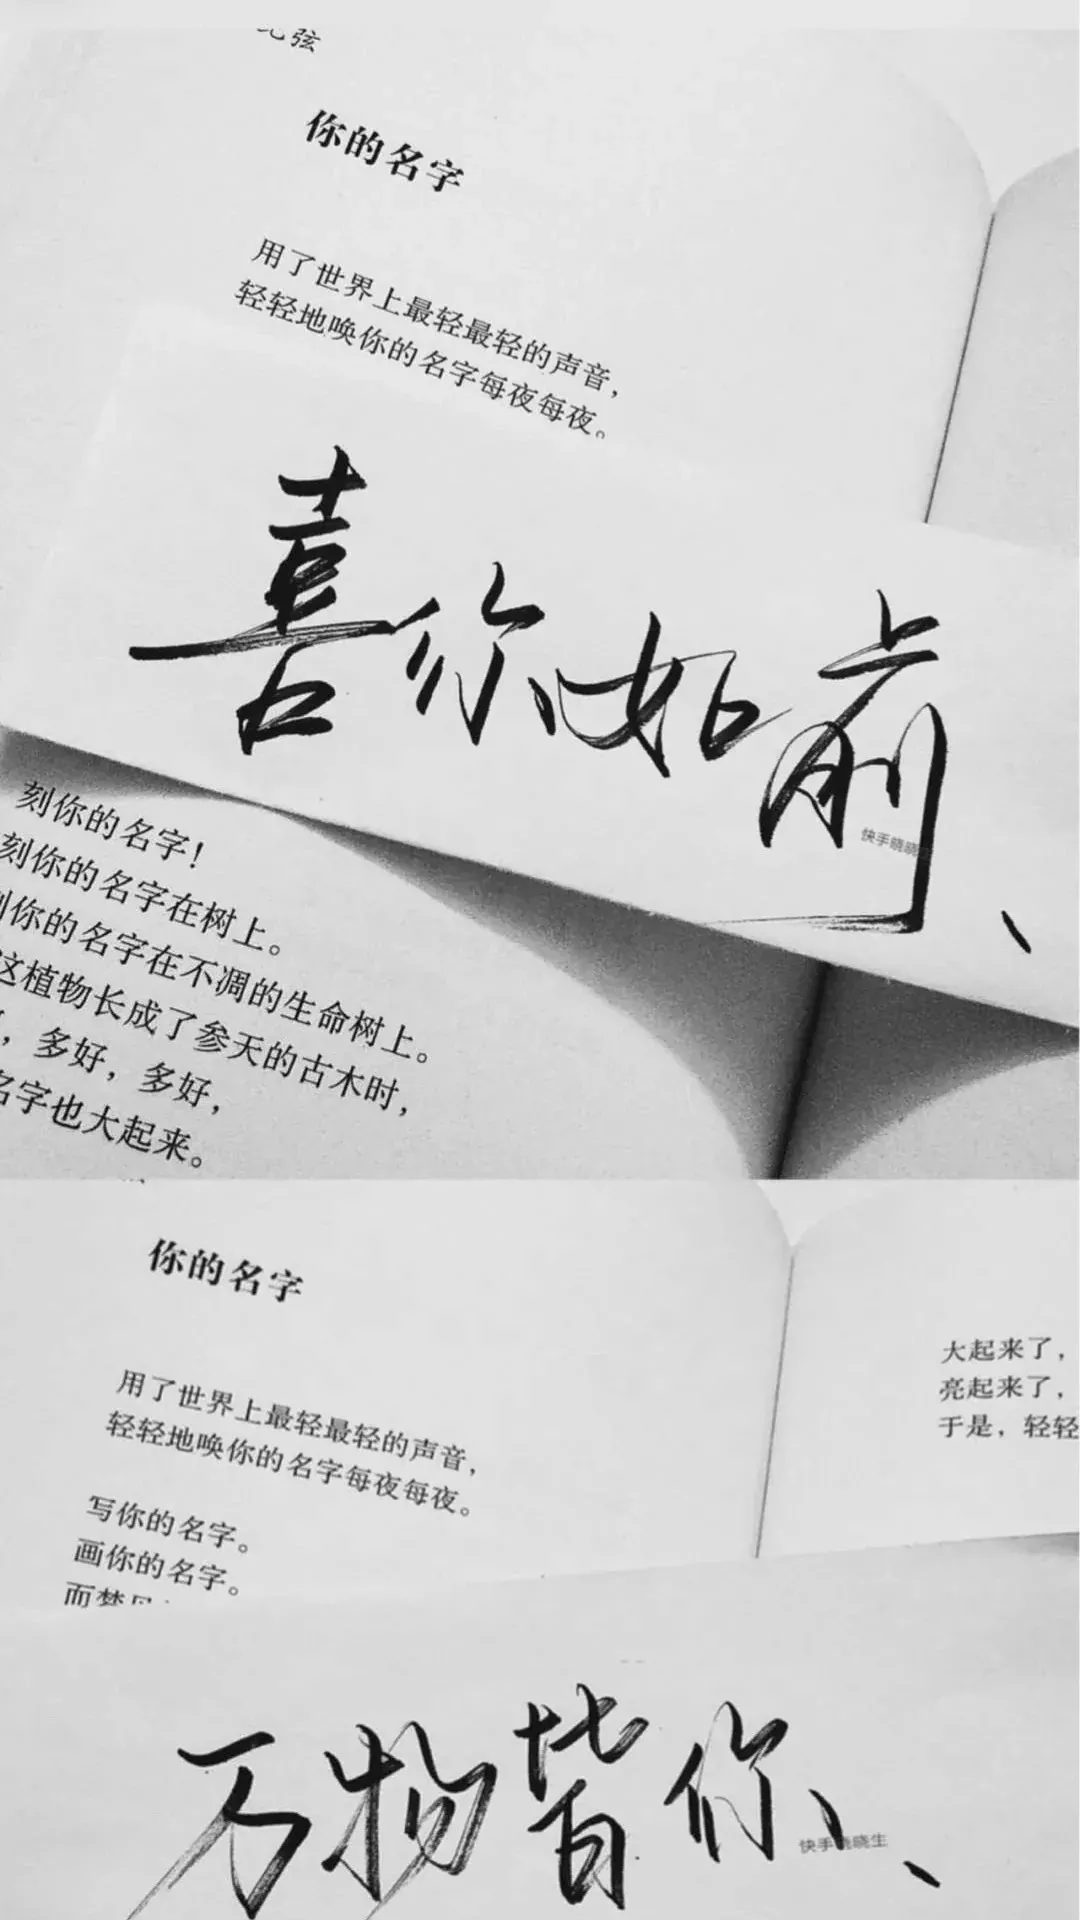 弦
你的名字
用了世界上最轻最轻的声音，
轻轻地唤你的名字每夜每夜。
喜你如前、
快手晓晓
刻你的名字！
刻你的名字在树上。
你的名字在不凋的生命树上。
这植物长成了参天的古木时，
，多好，多好，
名字也大起来。
你的名字
用了世界上最轻最轻的声音，
轻轻地唤你的名字每夜每夜。
写你的名字。
画你的名字。
而梦见
大起来了，
亮起来了，
于是，轻轻
万物皆你、
快手晓晓生